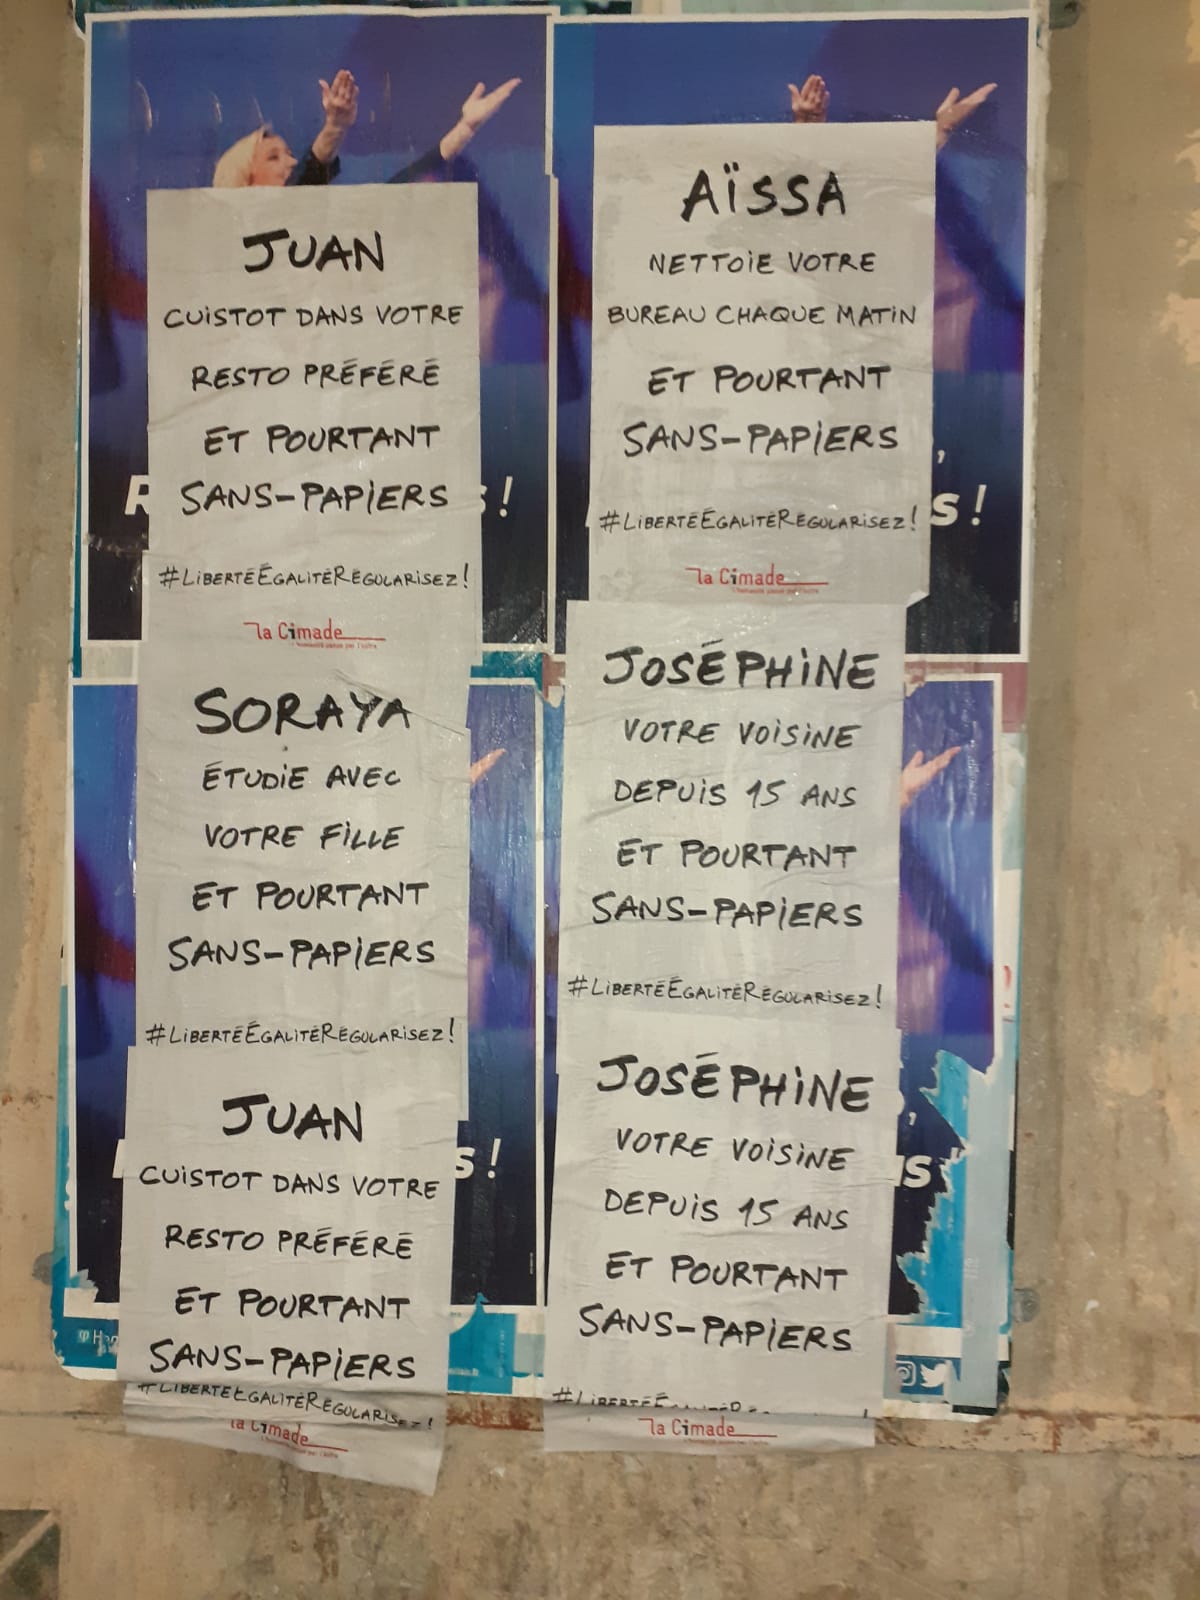 JUAN
CUISTOT DANS VOTRE
RESTO PRÉFÉRÉ
ET POURTANT
SANS-PAPIERS
#LIBERTÉÉGALITÉRÉGULARISEZ!
la Cimade
L'humanité passe par l'autre
SORAYA
ÉTUDIE AVEC
VOTRE FILLE
ET POURTANT
SANS-PAPIERS
#LIBERTÉÉGALITÉRÉGULARISEZ!
JUAN
CUISTOT DANS VOTRE
RESTO PRÉFÉRÉ
ET POURTANT
SANS-PAPIERS
#LIBERTÉÉGALITÉRÉGULARISEZ!
la Cimade
AÏSSA
NETTOIE VOTRE
BUREAU CHAQUE MATIN
ET POURTANT
SANS-PAPIERS
#LIBERTÉÉGALITÉRÉGULARISEZ!
la Cimade
L'humanité passe par l'autre
JOSÉPHINE
VOTRE VOISINE
DEPUIS 15 ANS
ET POURTANT
SANS-PAPIERS
#LIBERTÉÉGALITÉRÉGULARISEZ!
JOSÉPHINE
VOTRE VOISINE
DEPUIS 15 ANS
ET POURTANT
SANS-PAPIERS
la Cimade